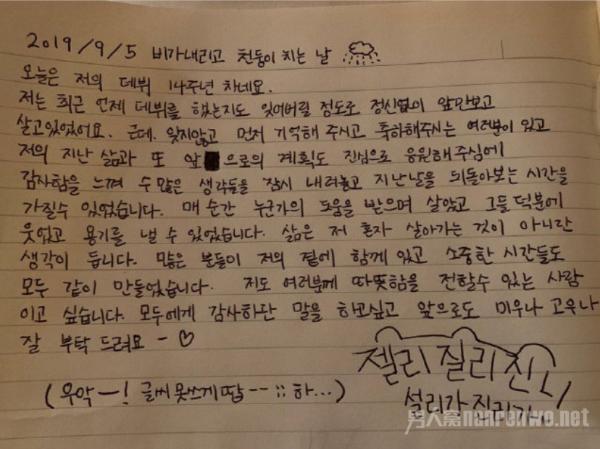 2019/9/5 비가내리고 천둥이 치는 날
오늘은 저의 데뷔 14주년 차네요.
저는 최근 언제 데뷔를 했는지도 잊어버릴 정도로 정신없이 앞만보고
살고있었어요. 근데, 잊지않고 먼저 기억해 주시고 축하해주시는 여러분이 있고
저의 지난 삶과 또 앞으로의 계획도 진심으로 응원해주심에
감사함을 느껴 수많은 생각들을 잠시 내려놓고 지난날을 뒤돌아보는 시간을
가질수 있었습니다. 매 순간 누군가의 도움을 받으며 살았고 그들 덕분에
웃었고 용기를 낼 수 있었습니다. 삶은 저 혼자 살아가는 것이 아니란
생각이 듭니다. 많은 분들이 저의 곁에 함께 있고 소중한 시간들도
모두 같이 만들었습니다. 저도 여러분께 따뜻함을 전할수 있는 사람
이고 싶습니다. 모두에게 감사하단 말을 하고싶고 앞으로도 미우나 고우나
잘 부탁 드려요 - ♡
젤리 질리 진리
설리가 진리가
(우악ㅡ! 글씨못쓰게땁 -- ;; 하...)
男人窝nanrenwo.net